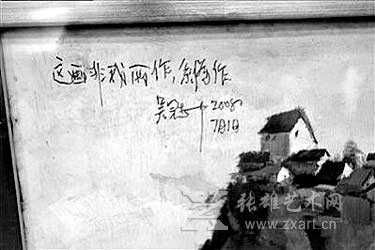 这画非我所作，系伪作
吴冠中 2008
7月1日
张雄艺术网
www.zxart.cn